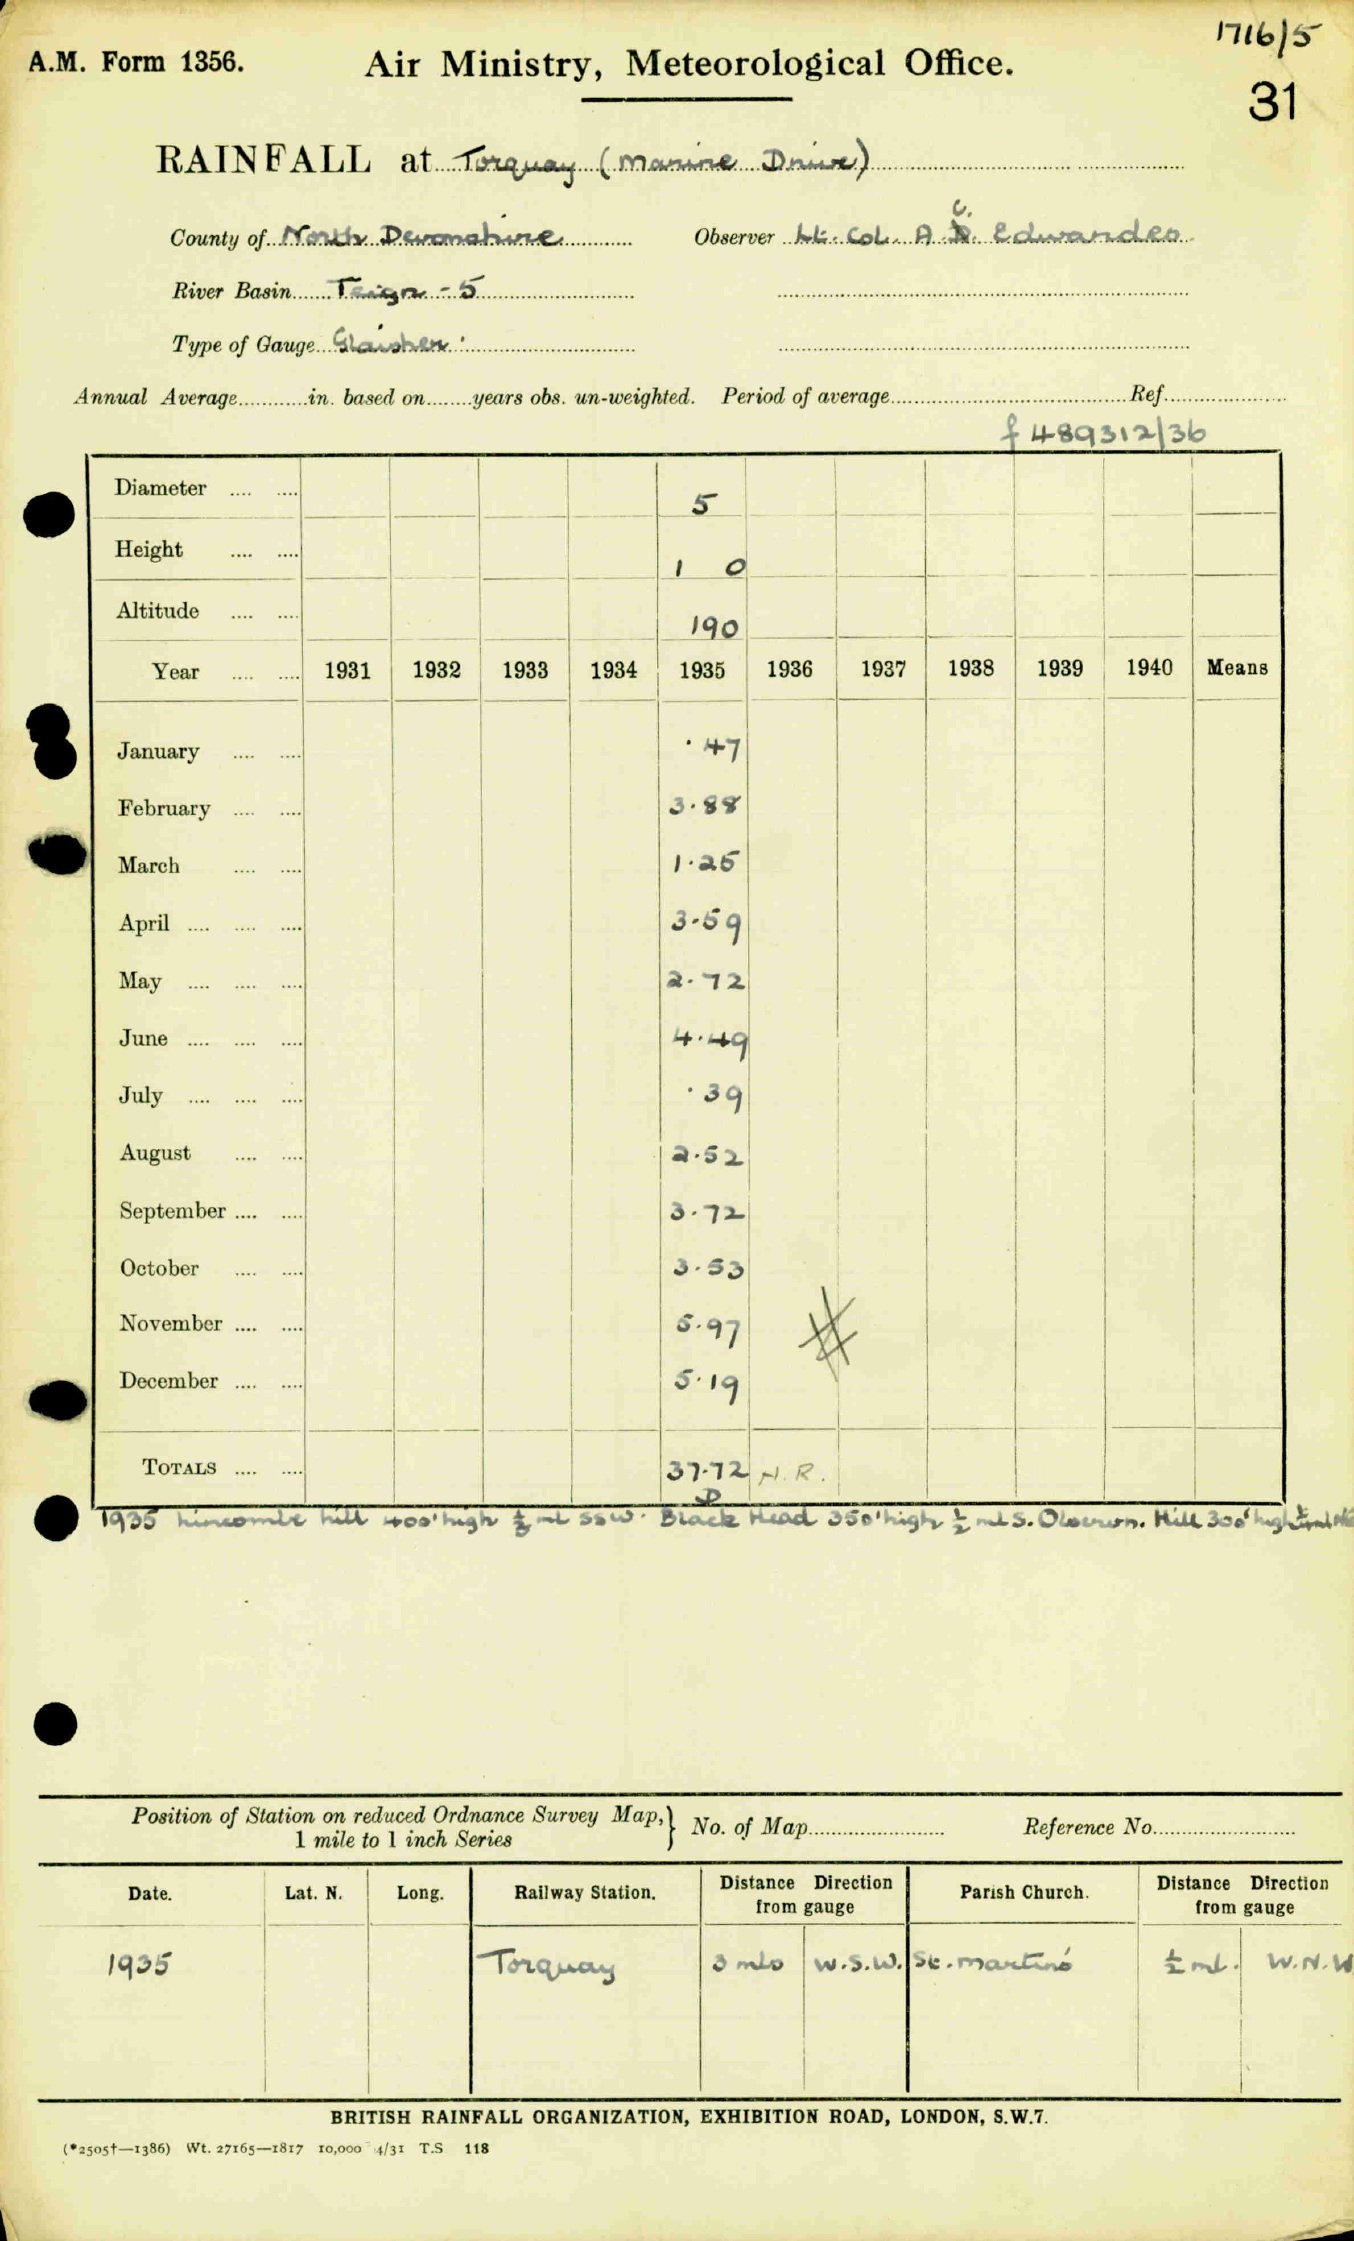 1716/5
A.M. Form 1356. Air Ministry, Meteorological Office.
31
RAINFALL at Torquay (Marine Drive)
County of North Devonshire Observer Lt. Col. A. C. Edwardes
River Basin Teign - 5
Type of Gauge Glaisher
Annual Average in. based on years obs. un-weighted. Period of average Ref.
f 489312/36
Diameter 5
Height 1 0
Altitude 190
Year 1931 1932 1933 1934 1935 1936 1937 1938 1939 1940 Means
January ·47
February 3·88
March 1·25
April 3·59
May 2·72
June 4·49
July ·39
August 2·52
September 3·72
October 3·53
November 5·97
December 5·19
TOTALS 37·72 N.R.
D
1935 Lincombe hill 400' high ½ ml SSW. Black Head 350' high ½ ml S. Hill 300' high
Position of Station on reduced Ordnance Survey Map, } No. of Map Reference No.
1 mile to 1 inch Series
Date. Lat. N. Long. Railway Station. Distance Direction from gauge Parish Church. Distance Direction from gauge
1935 Torquay 3 mls W.S.W. St. Martins ½ ml. W.N.W
BRITISH RAINFALL ORGANIZATION, EXHIBITION ROAD, LONDON, S.W.7.
(*2505†—1386) Wt. 27165—1817 10,000 4/31 T.S 118